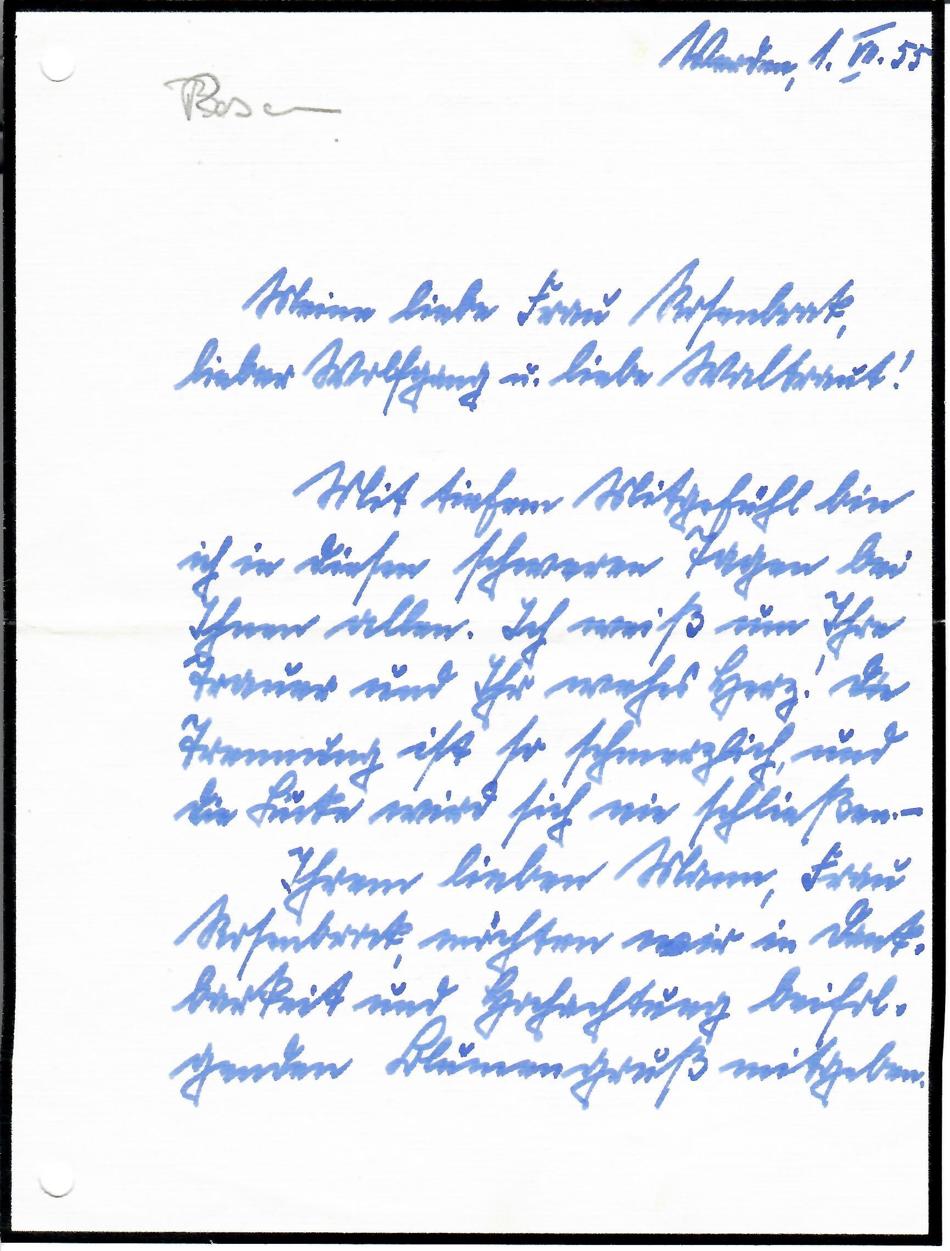 Werden, 1. VII. 55
Meine liebe Frau Rosenbrock,
lieber Wolfgang u. liebe Waltraut!
Mit tiefem Mitgefühl bin
ich in diesen schweren Tagen bei
Ihnen allen. Ich weiß um Ihre
Trauer und Ihr wehes Herz! Die
Trennung ist so schmerzlich, und
die Lücke wird sich nie schließen.–
Ihrem lieben Mann, Frau
Rosenbrock, möchten wir in Dank-
barkeit und Hochachtung beifol-
genden Blumengruß mitgeben.